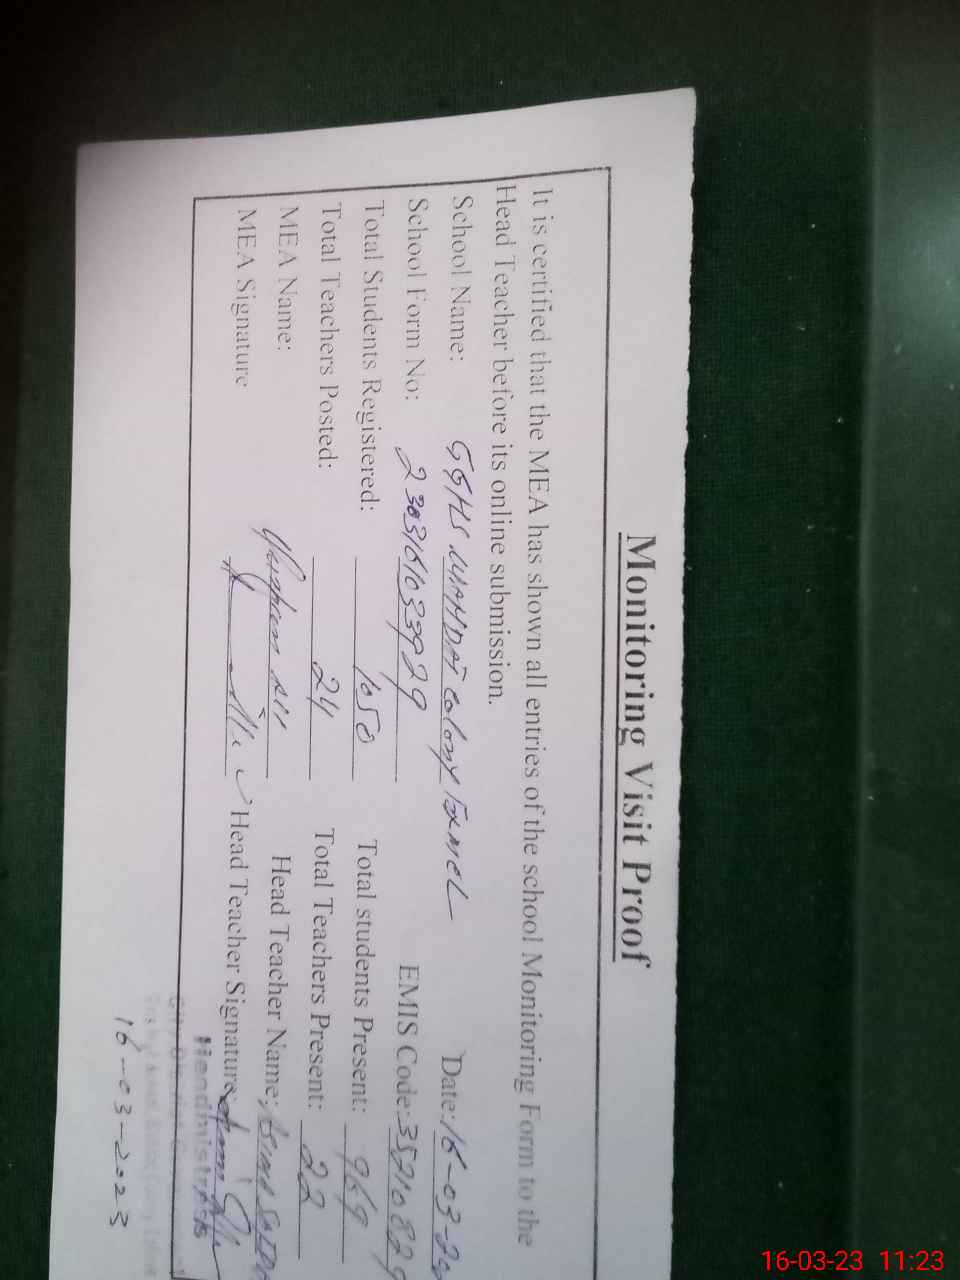 Monitoring Visit Proof
It is certified that the MEA has shown all entries of the school Monitoring Form to the
Head Teacher before its online submission.
School Name: GGHS WAHDAT colony Date: 16-03-20
School Form No: EMIS Code: 35710829
Total Students Registered: 1050 Total students Present: 969
Total Teachers Posted: 24 Total Teachers Present: 22
MEA Name: Head Teacher Name:
MEA Signature Head Teacher Signature:
Headmistress
16-03-2023
16-03-23 11:23